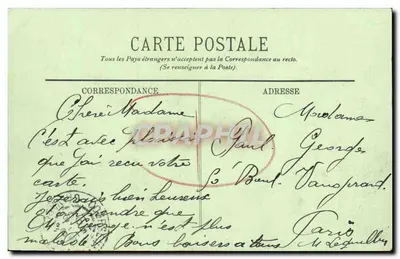 CARTE POSTALE
Tous les Pays étrangers n'acceptent pas la Correspondance au recto.
(Se renseigner à la Poste).
CORRESPONDANCE
ADRESSE
Chère Madame
C'est avec plaisir
que j'ai reçu votre
carte
Je serais bien heureux
d'apprendre que
n'est plus
malade Bons baisers a tous
Madame
Paul George
Bul. Vaugirard
Paris